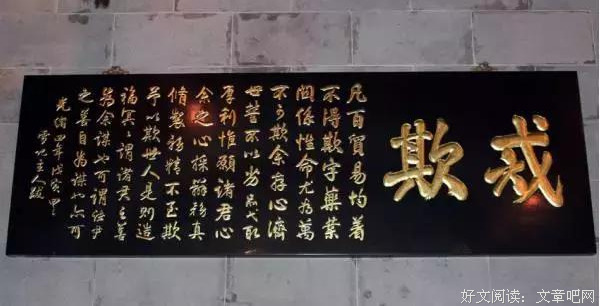 戒欺
凡百貿易均着
不得欺字藥業
關係性命尤為萬
不可欺余存心濟
世誓不以劣品弋取
厚利惟願諸君心
余之心採辦務真
脩製務精不至欺
予以欺世人是則造
福冥〻謂諸君之善
為余謀也可謂諸君
之善自為謀也亦可
光緒四年戊寅
雪記主人跋
好文阅读：文章吧网